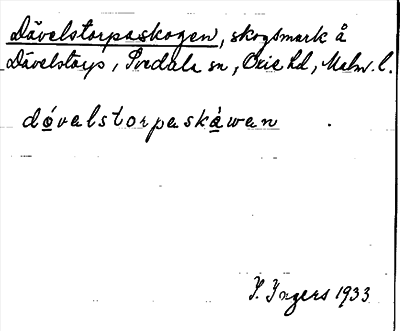 Dävelstorpaskogen, skogsmark å
Dävelstorp, Svedala sn, Oxie hd, Malm. l.
dóvalstorpaskàwan .
I. Ingers 1933